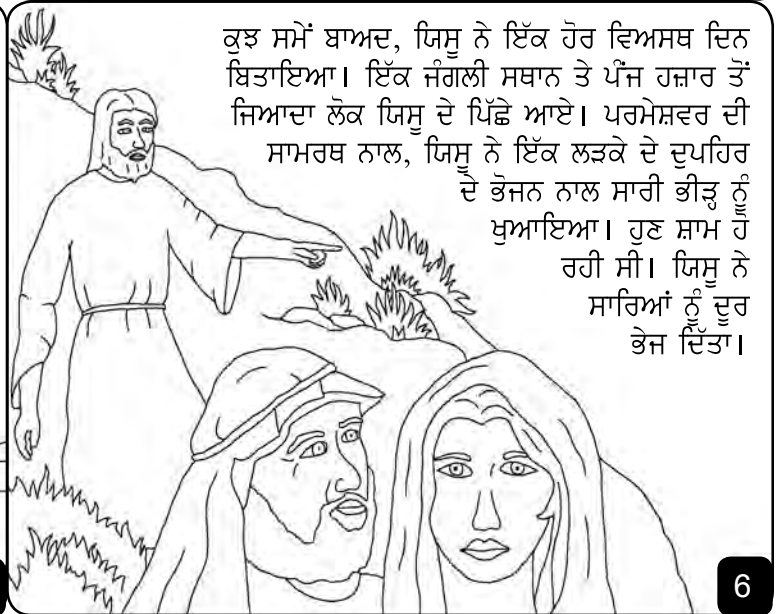 ਕੁਝ ਸਮੇਂ ਬਾਅਦ, ਯਿਸੂ ਨੇ ਇੱਕ ਹੋਰ ਵਿਅਸਥ ਦਿਨ
ਬਿਤਾਇਆ। ਇੱਕ ਜੰਗਲੀ ਸਥਾਨ ਤੇ ਪੰਜ ਹਜ਼ਾਰ ਤੋਂ
ਜਿਆਦਾ ਲੋਕ ਯਿਸੂ ਦੇ ਪਿੱਛੇ ਆਏ। ਪਰਮੇਸ਼ਵਰ ਦੀ
ਸਾਮਰਥ ਨਾਲ, ਯਿਸੂ ਨੇ ਇੱਕ ਲੜਕੇ ਦੇ ਦੁਪਹਿਰ
ਦੇ ਭੋਜਨ ਨਾਲ ਸਾਰੀ ਭੀੜ੍ਹ ਨੂੰ
ਖੁਆਇਆ। ਹੁਣ ਸ਼ਾਮ ਹੋ
ਰਹੀ ਸੀ। ਯਿਸੂ ਨੇ
ਸਾਰਿਆਂ ਨੂੰ ਦੂਰ
ਭੇਜ ਦਿੱਤਾ।
6